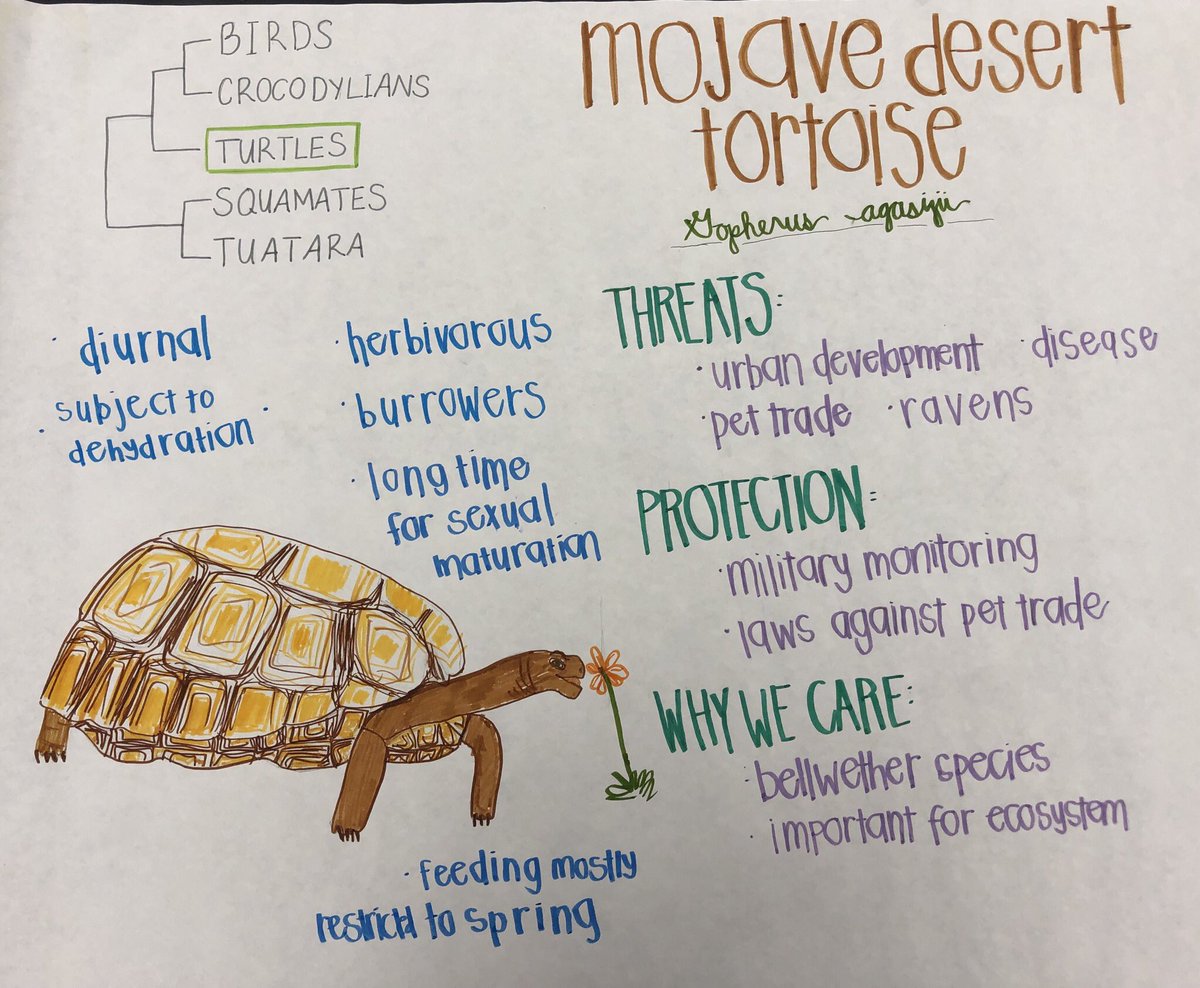 BIRDS
CROCODYLIANS
TURTLES
SQUAMATES
TUATARA
mojave desert
tortoise
Gopherus agasizii
· diurnal
· subject to
dehydration ·
· herbivorous
· burrowers
· long time
for sexual
maturation
THREATS:
· urban development · disease
· pet trade · ravens
PROTECTION:
· military monitoring
· laws against pet trade
WHY WE CARE:
· bellwether species
· important for ecosystem
· feeding mostly
restricted to spring